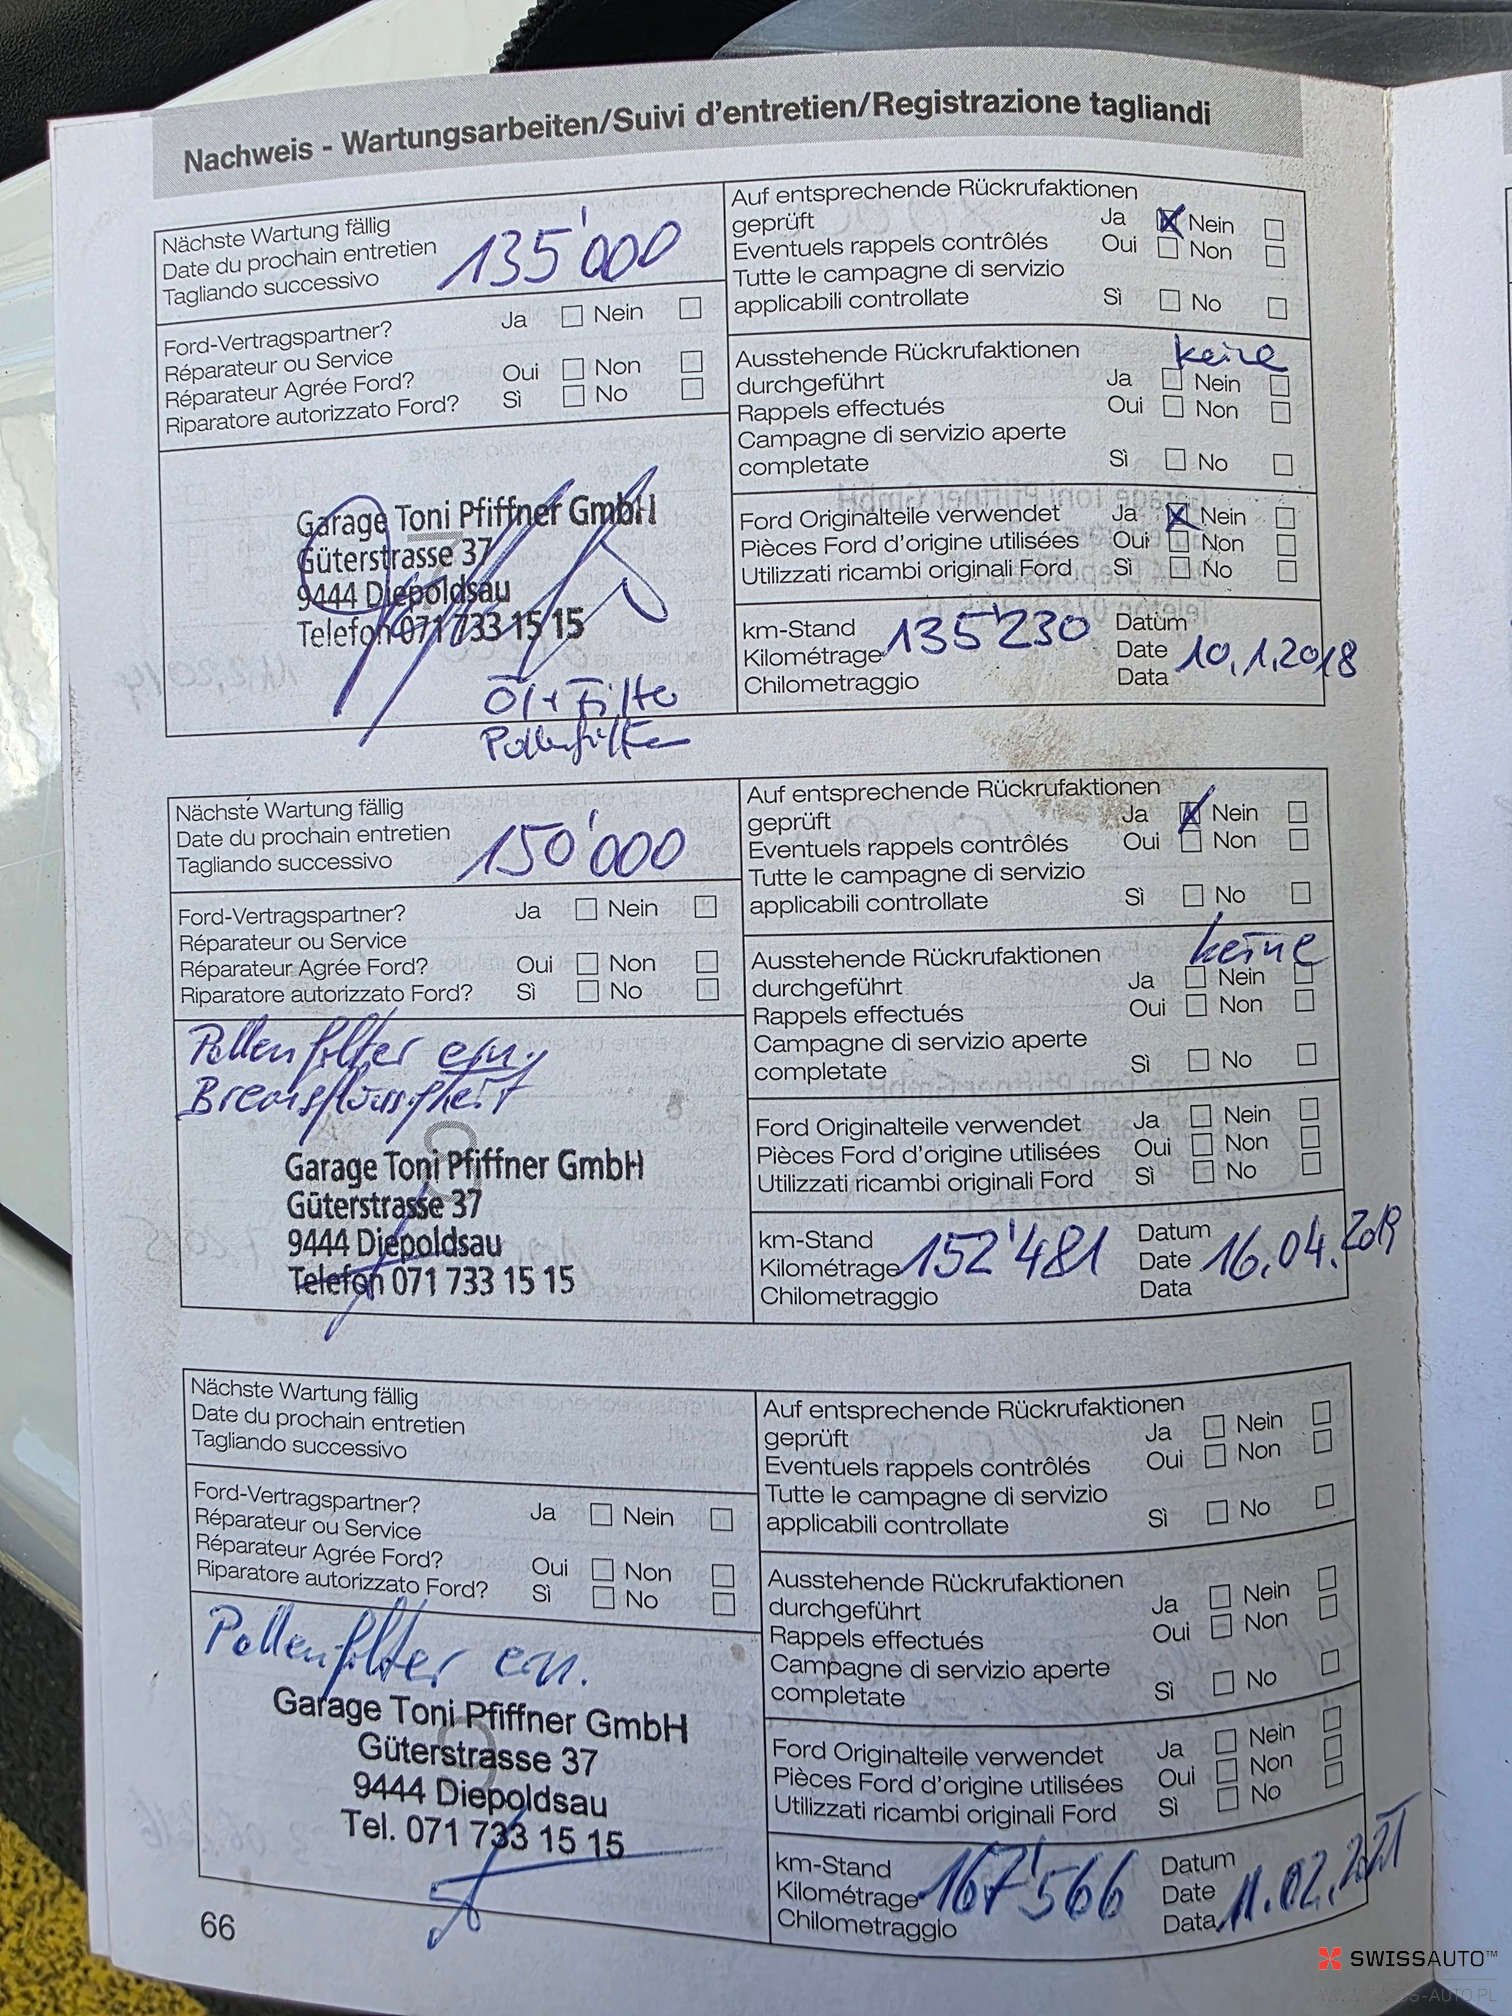 Nachweis - Wartungsarbeiten/Suivi d'entretien/Registrazione tagliandi
Nächste Wartung fällig
Date du prochain entretien
Tagliando successivo
135'000
Ford-Vertragspartner? Ja Nein
Réparateur ou Service
Réparateur Agrée Ford? Oui Non
Riparatore autorizzato Ford? Sì No
Garage Toni Pfiffner GmbH
Güterstrasse 37
9444 Diepoldsau
Telefon 071 733 15 15
Öl + Filter
Pollenfilter
Auf entsprechende Rückrufaktionen
geprüft Ja Nein
Eventuels rappels contrôlés Oui Non
Tutte le campagne di servizio
applicabili controllate Sì No
keine
Ausstehende Rückrufaktionen
durchgeführt Ja Nein
Rappels effectués Oui Non
Campagne di servizio aperte
completate Sì No
Ford Originalteile verwendet Ja Nein
Pièces Ford d'origine utilisées Oui Non
Utilizzati ricambi originali Ford Sì No
km-Stand
Kilométrage 135'230
Chilometraggio
Datum
Date 10.1.2018
Data
Nächste Wartung fällig
Date du prochain entretien
Tagliando successivo
150'000
Ford-Vertragspartner? Ja Nein
Réparateur ou Service
Réparateur Agrée Ford? Oui Non
Riparatore autorizzato Ford? Sì No
Pollenfilter ern,
Bremsflüssigkeit
Garage Toni Pfiffner GmbH
Güterstrasse 37
9444 Diepoldsau
Telefon 071 733 15 15
Auf entsprechende Rückrufaktionen
geprüft Ja Nein
Eventuels rappels contrôlés Oui Non
Tutte le campagne di servizio
applicabili controllate Sì No
keine
Ausstehende Rückrufaktionen
durchgeführt Ja Nein
Rappels effectués Oui Non
Campagne di servizio aperte
completate Sì No
Ford Originalteile verwendet Ja Nein
Pièces Ford d'origine utilisées Oui Non
Utilizzati ricambi originali Ford Sì No
km-Stand
Kilométrage 152'481
Chilometraggio
Datum
Date 16.04.2019
Data
Nächste Wartung fällig
Date du prochain entretien
Tagliando successivo
Ford-Vertragspartner? Ja Nein
Réparateur ou Service
Réparateur Agrée Ford? Oui Non
Riparatore autorizzato Ford? Sì No
Pollenfilter ern.
Garage Toni Pfiffner GmbH
Güterstrasse 37
9444 Diepoldsau
Tel. 071 733 15 15
Auf entsprechende Rückrufaktionen
geprüft Ja Nein
Eventuels rappels contrôlés Oui Non
Tutte le campagne di servizio
applicabili controllate Sì No
Ausstehende Rückrufaktionen
durchgeführt Ja Nein
Rappels effectués Oui Non
Campagne di servizio aperte
completate Sì No
Ford Originalteile verwendet Ja Nein
Pièces Ford d'origine utilisées Oui Non
Utilizzati ricambi originali Ford Sì No
km-Stand
Kilométrage 167'566
Chilometraggio
Datum
Date 11.02.2021
Data
66
SWISSAUTO™